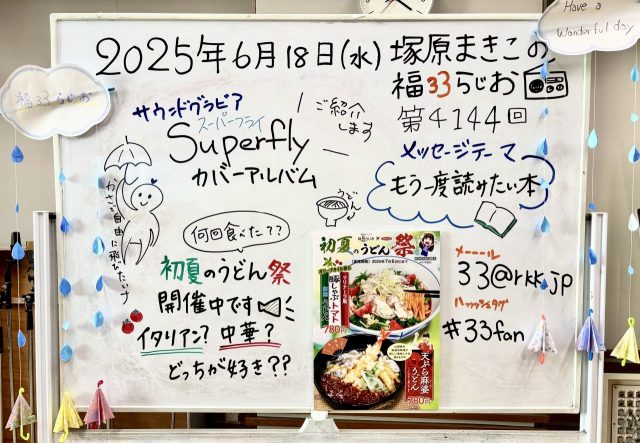 Have a
Wonderful day
福33らじお
2025年6月18日(水)
塚原まきこの
福33らじお
第4144回
サウンドグラビア
スーパーフライ
Superfly
カバーアルバム
ご紹介
します
メッセージテーマ
もう一度読みたい本
かさで自由に飛びたいナ
うどん
何回食べた??
初夏のうどん祭
開催中です
イタリアン? 中華?
どっちが好き??
初夏のうどん祭
豚しゃぶトマト
780円
天ぷら麻婆
うどん
780円
メーーール
33@rkk.jp
ハッシュタグ
#33fan